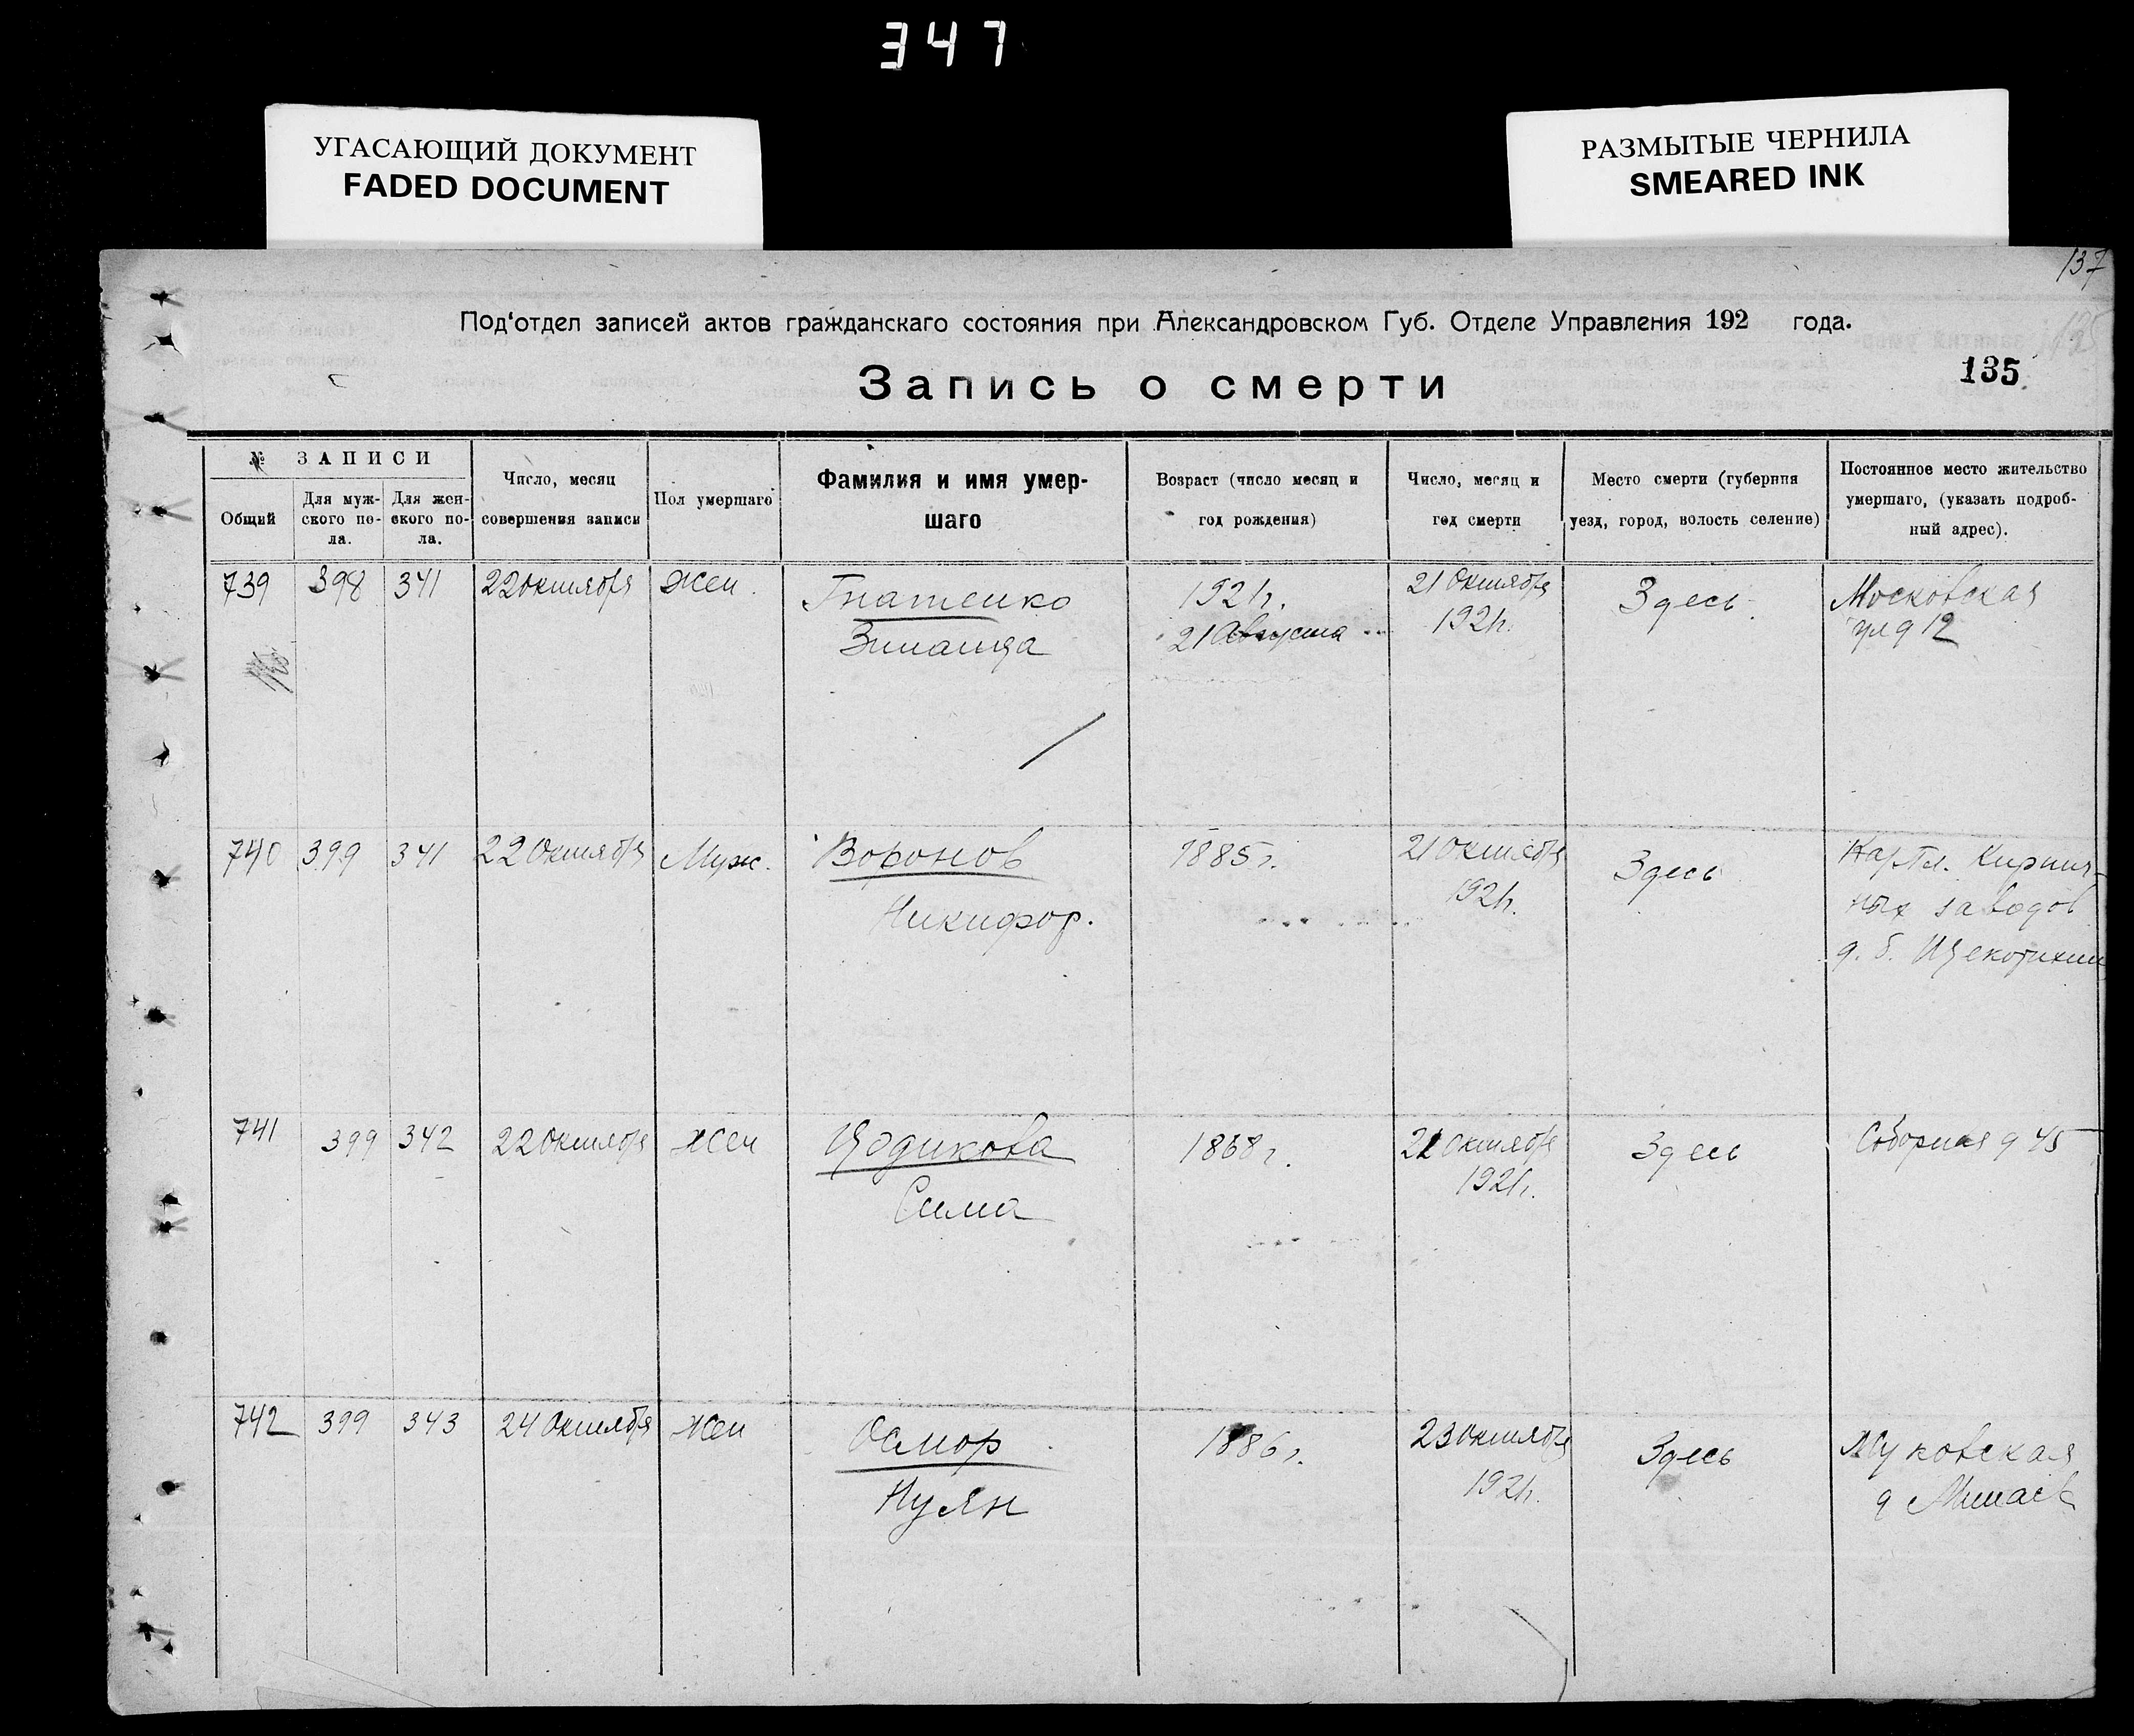 347
УГАСАЮЩИЙ ДОКУМЕНТ
FADED DOCUMENT
РАЗМЫТЫЕ ЧЕРНИЛА
SMEARED INK
137
Под‘отдел записей актов гражданскаго состояния при Александровском Губ. Отделе Управления 192 года.
135
Запись о смерти
№ ЗАПИСИ
Общий
Для муж-
ского по-
ла.
Для жен-
ского по-
ла.
Число, месяц
совершения записи
Пол умершаго
Фамилия и имя умер-
шаго
Возраст (число месяц и
год рождения)
Число, месяц и
год смерти
Место смерти (губерния
уезд, город, волость селение)
Постоянное место жительство
умершаго, (указать подроб-
ный адрес).
739 398 341 22 октября Жен.
Гнатенко
Зинаида
1921г.
21 Августа
21 Октября
1921г.
Здесь
Московская
ул д 12
740 399 341 22 Октября Муж.
Воронов
Никифор.
1885г.
21 Октября
1921г.
Здесь
Кирпич-
ных заводов
741 399 342 22 Октября Жен
Цодикова
Сима
1868г.
Октября
1921г.
Здесь
Соборная д 45
742 399 343 24 Октября Жен
1886г.
23 Октября
1921г.
Здесь